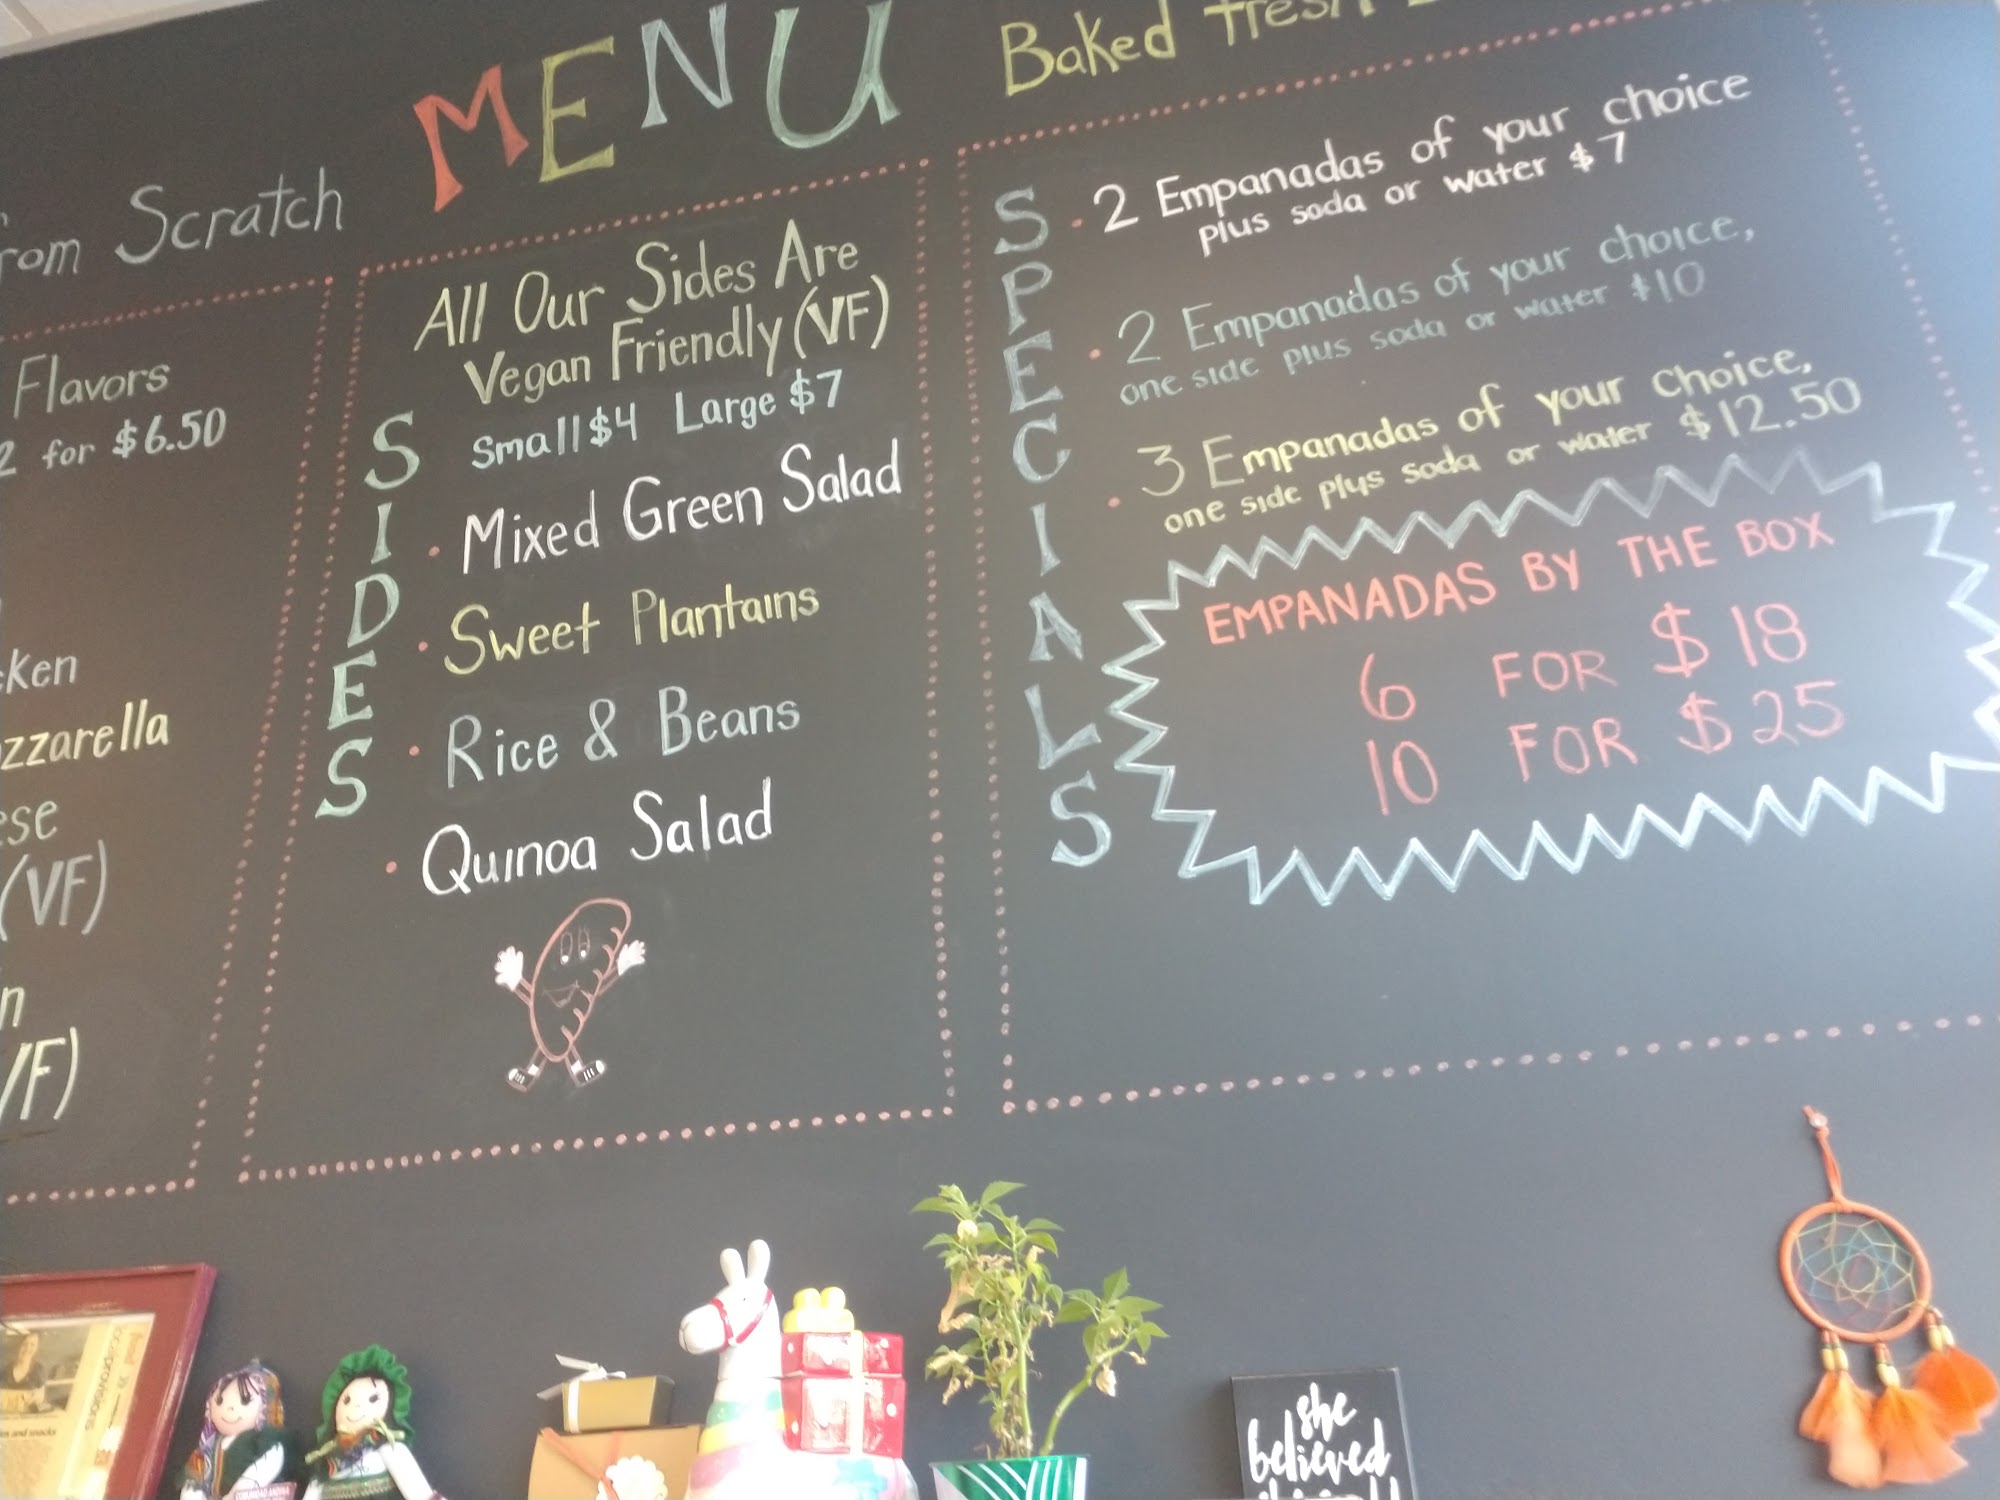 MENU
Baked fresh
Scratch
Flavors
2 for $6.50
(VF)
All Our Sides Are
Vegan Friendly (VF)
Small $4 Large $7
SIDES
· Mixed Green Salad
· Sweet Plantains
· Rice & Beans
· Quinoa Salad
SPECIALS
· 2 Empanadas of your choice
plus soda or water $7
· 2 Empanadas of your choice,
one side plus soda or water $10
· 3 Empanadas of your choice,
one side plus soda or water $12.50
EMPANADAS BY THE BOX
6 FOR $18
10 FOR $25
she
believed